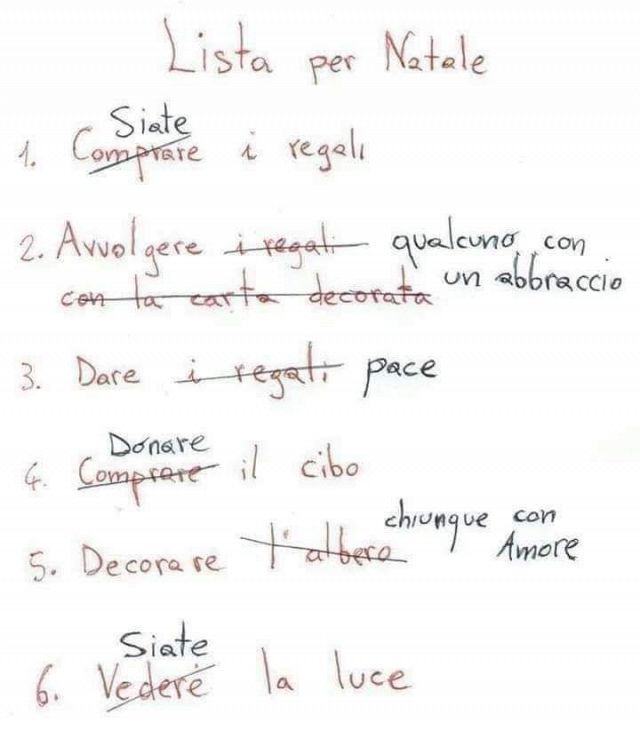 Lista per Natale
Siate
1. Comprare i regali
2. Avvolgere i regali qualcuno con
con la carta decorata un abbraccio
3. Dare i regali pace
Donare
4. Comprare il cibo
chiunque con
5. Decorare l'albero Amore
Siate
6. Vedere la luce